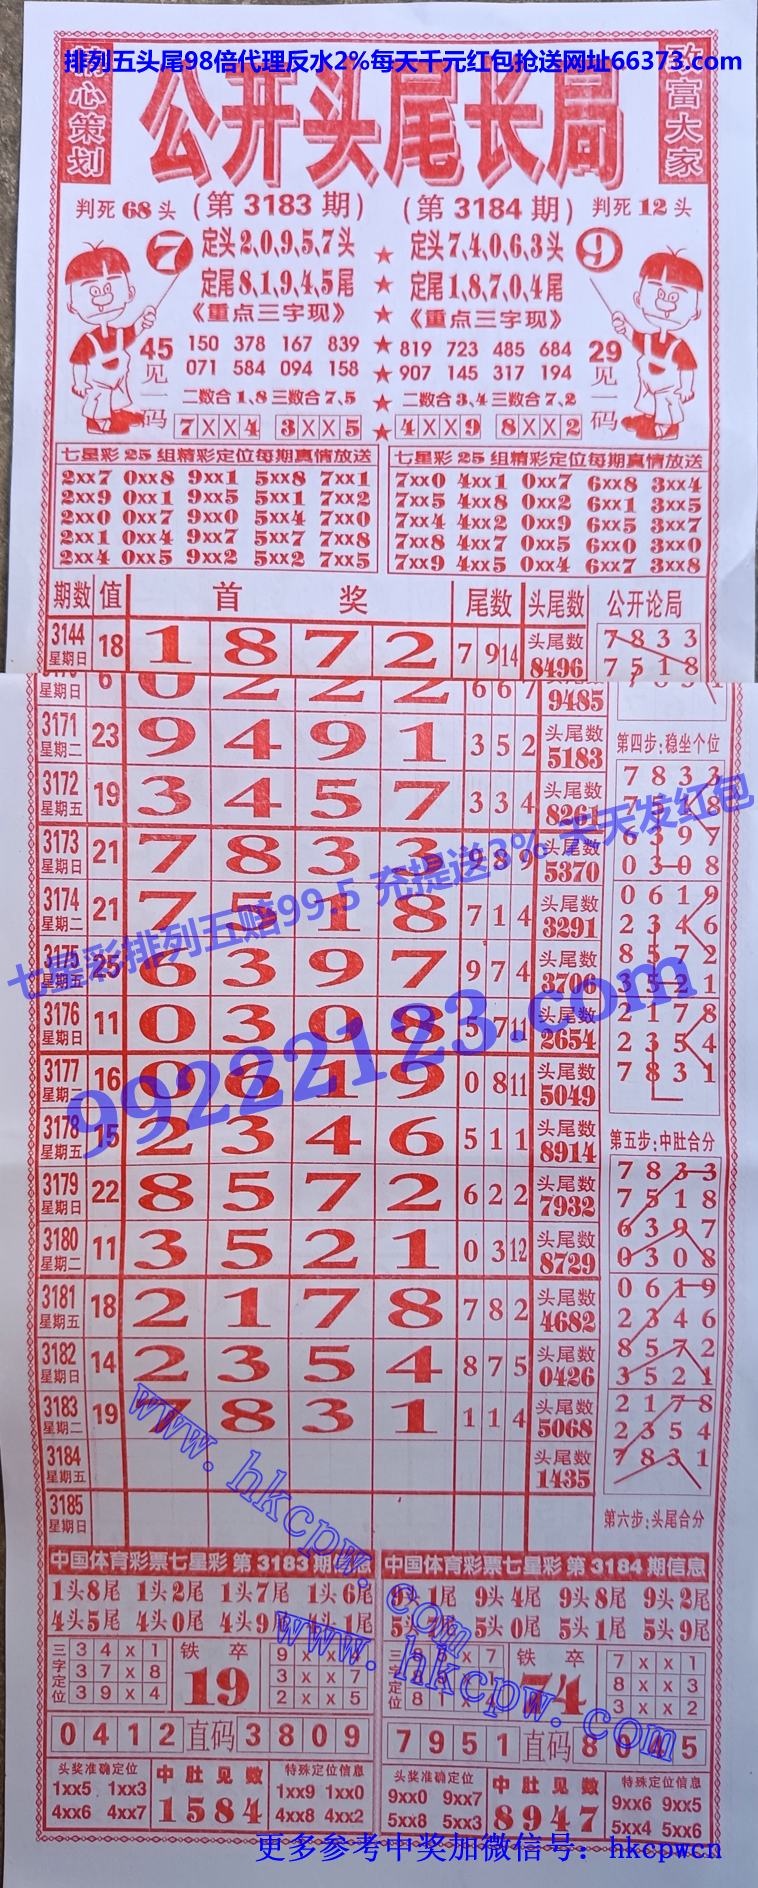 排列五头尾98倍代理反水2%每天千元红包抢送网址66373.com
精心策划
公开头尾长局
致富大家
判死68头 (第3183期) (第3184期) 判死12头
7 定头2,0,9,5,7头 ★ 定头7,4,0,6,3头 9
定尾8,1,9,4,5尾 ★ 定尾1,8,7,0,4尾
《重点三字现》 ★ 《重点三字现》
45见一码 150 378 167 839 ★ 819 723 485 684 29见一码
071 584 094 158 ★ 907 145 317 194
二数合1,8三数合7,5 ★ 二数合3,4三数合7,2
7XX4 3XX5 ★ 4XX9 8XX2
七星彩25组精彩定位每期真情放送 七星彩25组精彩定位每期真情放送
2xx7 0xx8 9xx1 5xx8 7xx1 7xx0 4xx1 0xx7 6xx8 3xx4
2xx9 0xx1 9xx5 5xx1 7xx2 7xx5 4xx8 0xx2 6xx1 3xx5
2xx0 0xx7 9xx0 5xx4 7xx0 7xx4 4xx2 0xx9 6xx5 3xx7
2xx1 0xx4 9xx7 5xx7 7xx8 7xx8 4xx7 0xx5 6xx0 3xx0
2xx4 0xx5 9xx2 5xx2 7xx5 7xx9 4xx5 0xx4 6xx7 3xx8
期数 值 首 奖 尾数 头尾数 公开论局
3144 星期日 18 1 8 7 2 7 9 14 头尾数 8496
7 8 3 3
7 5 1 8
星期日 6 0 2 2 2 6 6 7 9485
3171 星期二 23 9 4 9 1 3 5 2 头尾数 5183
3172 星期五 19 3 4 5 7 3 3 4 头尾数 8261
3173 星期日 21 7 8 3 3 9 8 9 头尾数 5370
3174 星期二 21 7 5 1 8 7 1 4 头尾数 3291
3175 星期五 25 6 3 9 7 9 7 4 头尾数 3706
3176 星期日 11 0 3 0 8 5 7 11 头尾数 2654
3177 星期二 16 0 6 1 9 0 8 11 头尾数 5049
3178 星期五 15 2 3 4 6 5 1 1 头尾数 8914
3179 星期日 22 8 5 7 2 6 2 2 头尾数 7932
3180 星期二 11 3 5 2 1 0 3 12 头尾数 8729
3181 星期五 18 2 1 7 8 7 8 2 头尾数 4682
3182 星期日 14 2 3 5 4 8 7 5 头尾数 0426
3183 星期二 19 7 8 3 1 1 1 4 头尾数 5068
3184 星期五 头尾数 1435
3185 星期日
7 8 3 1
第四步:稳坐个位
7 8 3 3
7 5 1 8
6 3 9 7
0 3 0 8
0 6 1 9
2 3 4 6
8 5 7 2
3 5 2 1
2 1 7 8
2 3 5 4
7 8 3 1
第五步:中肚合分
7 8 3 3
7 5 1 8
6 3 9 7
0 3 0 8
0 6 1 9
2 3 4 6
8 5 7 2
3 5 2 1
2 1 7 8
2 3 5 4
7 8 3 1
第六步:头尾合分
七星彩排列五赔99.5 充提送3% 天天发红包
99222123.com
www.hkcpw.com
www.hkcpw.com
中国体育彩票七星彩 第3183期信息 中国体育彩票七星彩 第3184期信息
1头8尾 1头2尾 1头7尾 1头6尾 9头1尾 9头4尾 9头8尾 9头2尾
4头5尾 4头0尾 4头9尾 4头1尾 5头0尾 5头1尾 5头9尾
三字定位 3 4 x 1 铁卒
3 7 x 8 19 3 x x 7
3 9 x 4 2 x x 5
三字定位 铁卒 74 7 x x 1
8 x x 3
3 x x 2
0412 直码 3809 7951 直码 8045
头奖准确定位 中肚见数 特殊定位信息 头奖准确定位 中肚见数 特殊定位信息
1xx5 1xx3 1584 1xx9 1xx0 9xx0 9xx7 8947 9xx6 9xx5
4xx6 4xx7 4xx8 4xx2 5xx8 5xx3 5xx4 5xx6
更多参考中奖加微信号：hkcpwcn